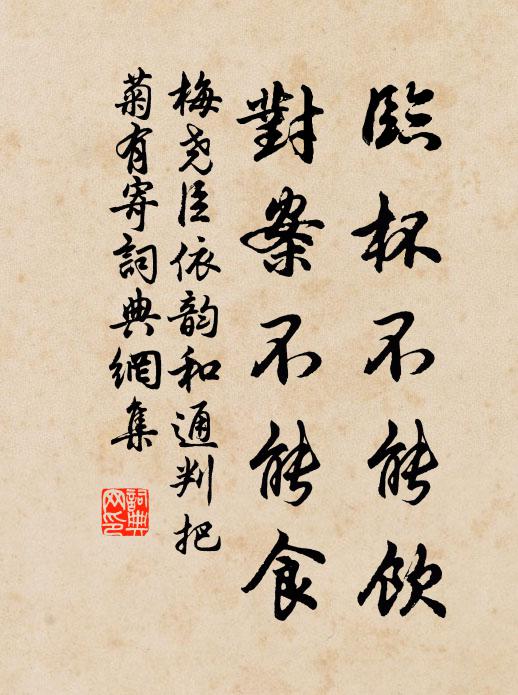 臨杯不能飲
對案不能食
梅堯臣依韵和通判把
菊有寄詞典網集
詞典
网印